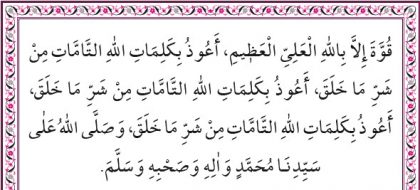 قُوَّةَ إِلاَّ بِاللهِ الْعَلِيِّ الْعَظِيمِ، أَعُوذُ بِكَلِمَاتِ اللهِ التَّامَّاتِ مِنْ
شَرِّ مَا خَلَقَ، أَعُوذُ بِكَلِمَاتِ اللهِ التَّامَّاتِ مِنْ شَرِّ مَا خَلَقَ،
أَعُوذُ بِكَلِمَاتِ اللهِ التَّامَّاتِ مِنْ شَرِّ مَا خَلَقَ، وَصَلَّى اللهُ عَلٰى
سَيِّدِنَا مُحَمَّدٍ وَاٰلِهِ وَصَحْبِهِ وَسَلَّمَ.